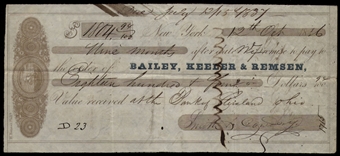 July 12/15 1857
$ 1814 96/100 New York 12th Oct 56
Nine months after date I promise to pay to
the Order of BAILEY, KEELER & REMSEN,
Eighteen hundred & fourteen Dollars
Value received at the Bank of Cleveland Ohio
D 23